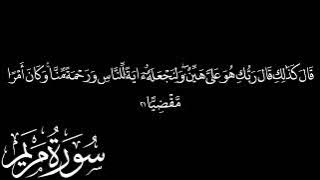 قَالَ كَذَٰلِكِ قَالَ رَبُّكِ هُوَ عَلَىَّ هَيِّنٌۭ ۖ وَلِنَجْعَلَهُۥٓ ءَايَةًۭ لِّلنَّاسِ وَرَحْمَةًۭ مِّنَّا ۚ وَكَانَ أَمْرًۭا
مَّقْضِيًّۭا ٢١
سورة مريم